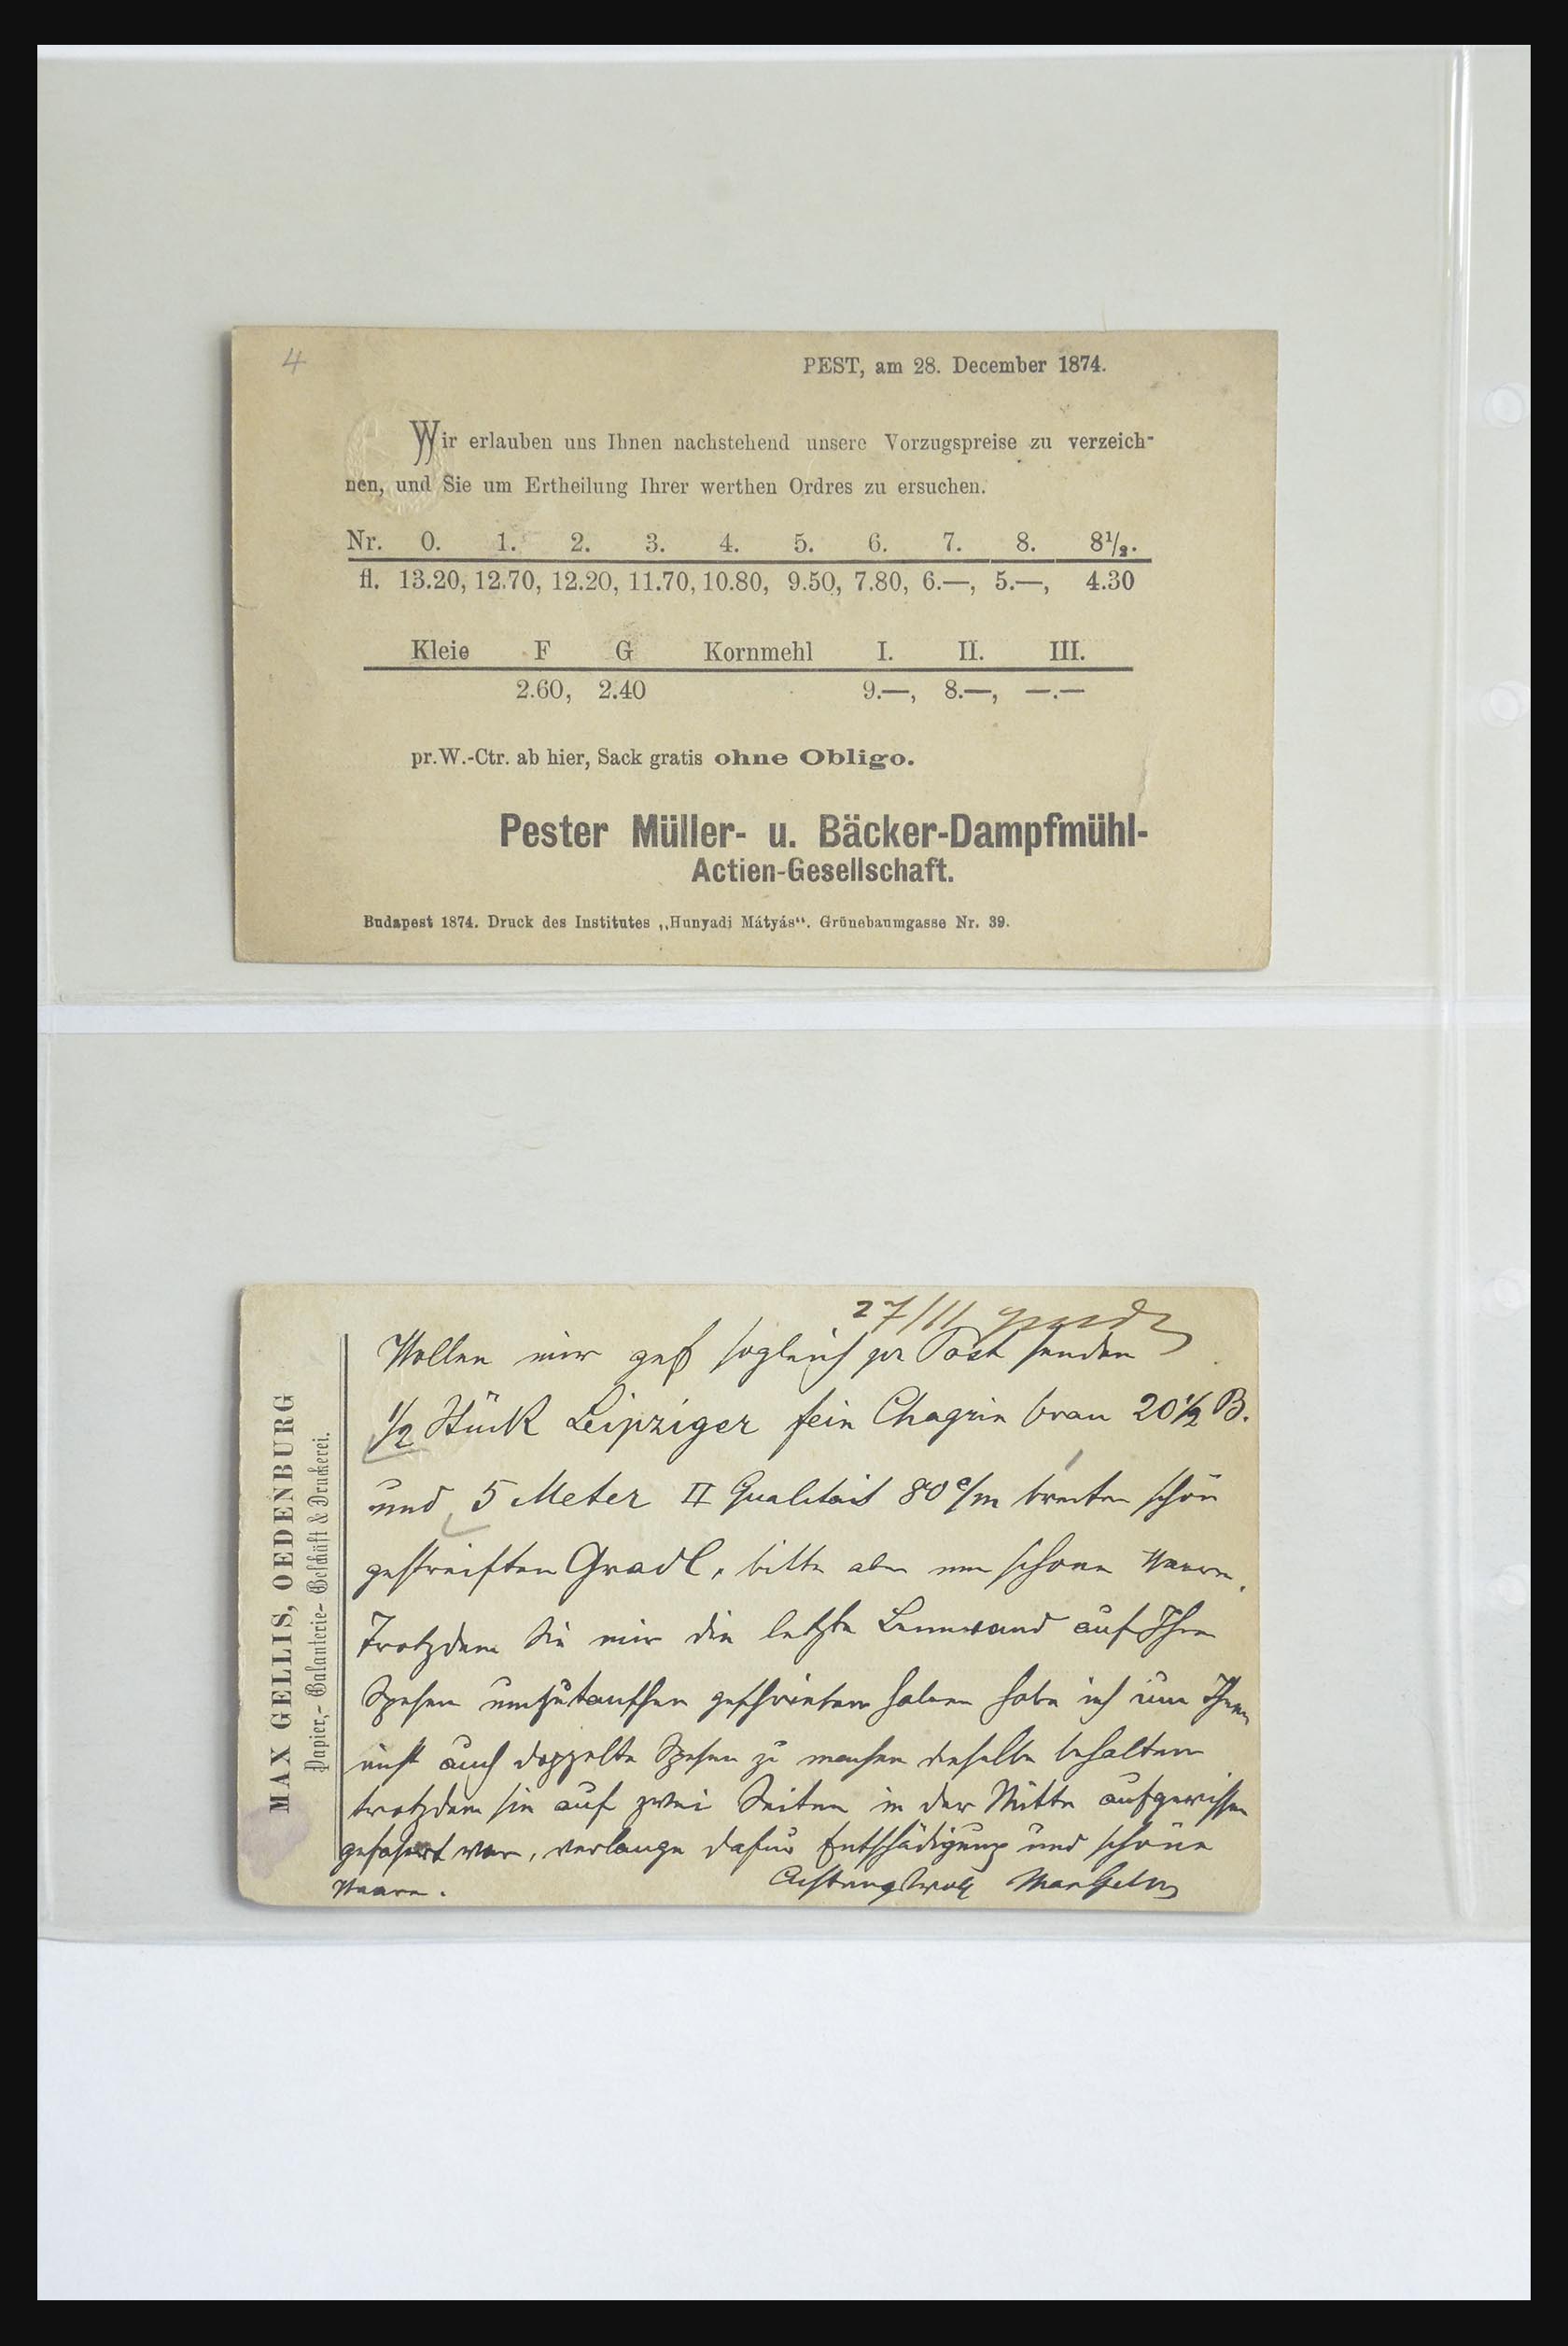 4
PEST, am 28. December 1874.
Wir erlauben uns Ihnen nachstehend unsere Vorzugspreise zu verzeich-
nen, und Sie um Ertheilung Ihrer werthen Ordres zu ersuchen.
Nr. 0. 1. 2. 3. 4. 5. 6. 7. 8. 8½.
fl. 13.20, 12.70, 12.20, 11.70, 10.80, 9.50, 7.80, 6.—, 5.—, 4.30
Kleie F G Kornmehl I. II. III.
2.60, 2.40 9.—, 8.—, —.—
pr.W.-Ctr. ab hier, Sack gratis ohne Obligo.
Pester Müller- u. Bäcker-Dampfmühl-
Actien-Gesellschaft.
Budapest 1874. Druck des Institutes „Hunyadi Mátyás“. Grünebaumgasse Nr. 39.
MAX GELLIS, OEDENBURG
Papier,- Galanterie- Geschäft & Druckerei.
27/11
Wollen mir gef sogleich pr Post senden
½ Stück Leipziger fein Chagrin braun 20½ B.
und 5 Meter II Qualität 80 c/m breiten schön
gestreiften Gradl, bitte aber nur schöne Waare.
Trotzdem Sie mir die letzte Leinwand auf Ihre
Spesen umzutauschen geschrieben haben habe ich um Ihnen
nicht auch doppelte Spesen zu machen dieselbe behalten
trotzdem sie auf zwei Seiten in der Mitte aufgerissen
war, verlange dafür Entschädigung und schöne
Waare.
Achtungsvoll Max Gellis